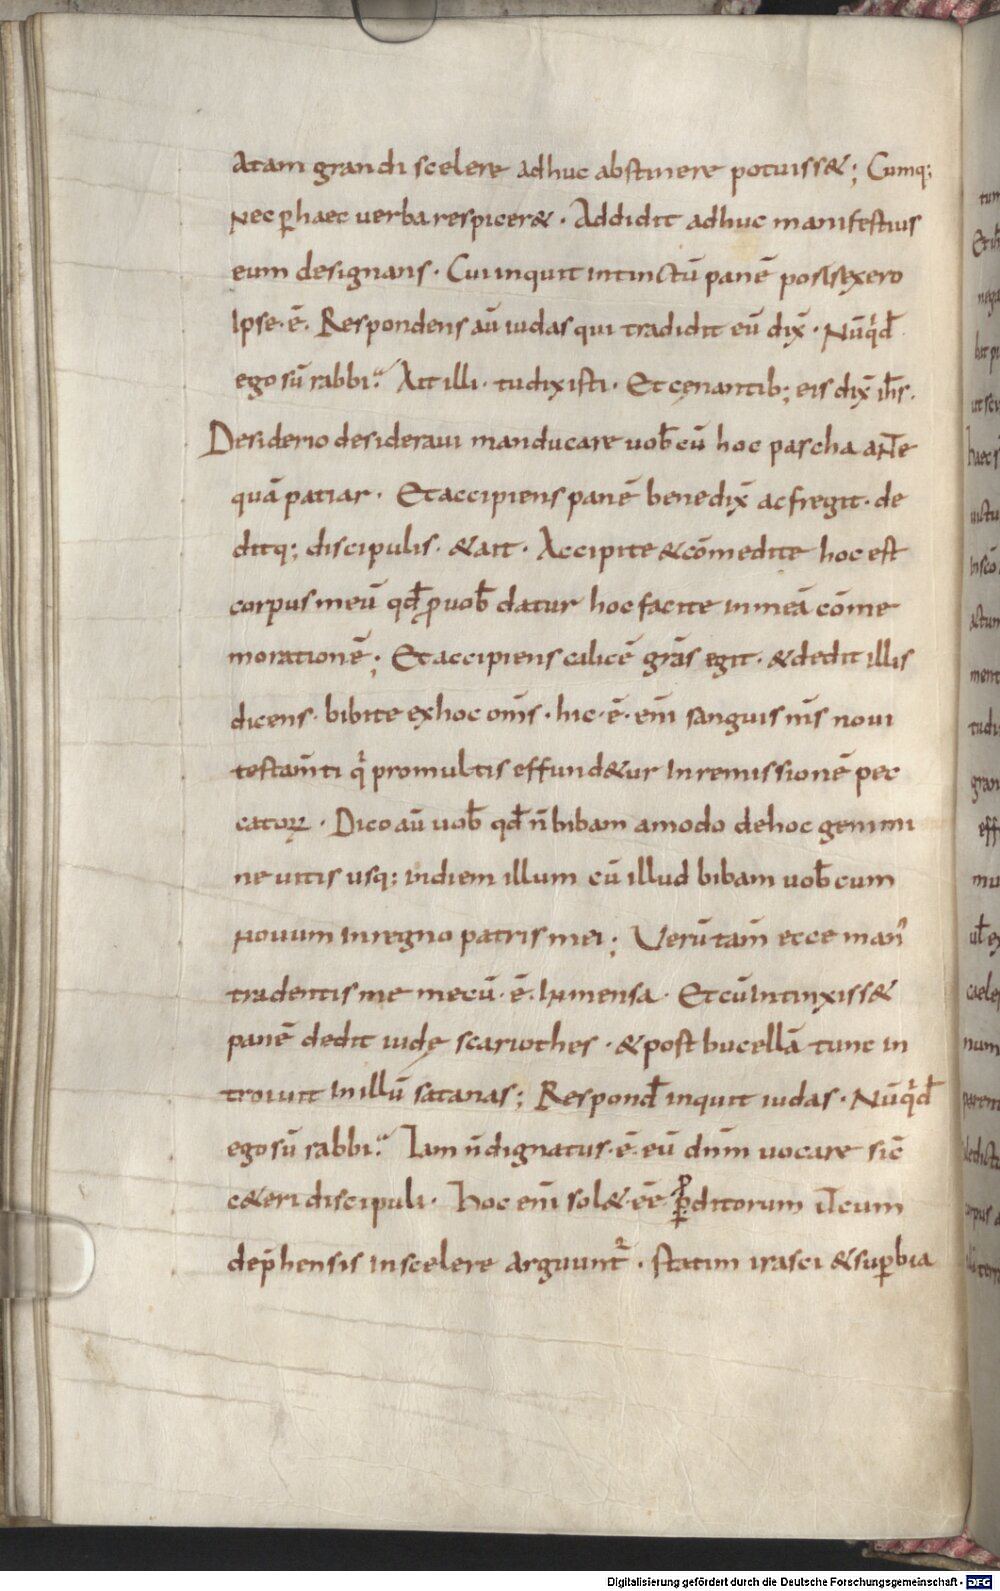 atam grandi scelere adhuc abstinere potuiss&; Cumq;
nec p̄ haec uerba respicer&. Addidit adhuc manifestius
eum designans. Cui inquit intinctū panē porrexero
Ipse·ē· Respondens aū iudas qui tradidit eū dix̄. Nūqͥd̄
ego sū rabbi? Ait illi. tu dixisti. Et cęnantib; eis dix̄ ih̄s.
Desiderio desideraui manducare uob̄cū hoc pascha ante
quā patiar. Et accipiens panē benedix̄ ac fregit. de
ditq; discipulis. & ait. Accipite & cōmedite hoc est
corpus meū qd̄ ꝓ uob̄ datur hoc facite in meā cōme
morationē; Et accipiens calicē grās egit. & dedit illis
dicens. bibite ex hoc om̄s. hic·ē·em̄ sanguis m̄s noui
testam̄ti qͥ pro multis effund&ur In remissionē pec
catoꝝ. Dico aū uob̄ qd̄ n̄ bibam amodo de hoc genimi
ne uitis usq; in diem illum cū illud bibam uob̄cum
nouum In regno patris mei; Verū tam̄ ecce man᾽
tradentis me mecū·ē·In mensa. Et cū Intinxiss&
panē dedit iudę scariothes. & post bucellā tunc in
troiuit In illū satanas; Respond̄ inquit iudas. Nūqͥd̄
ego sū rabbi? Iam n̄ dignatus·ē·eū dn̄m uocare sic̄
c&eri discipuli. Hoc em̄ sol&·ēē· ꝓditorum ut cum
dep̄hensis in scelere arguunt᷑. statim irasci & sup̄bia
Digitalisierung gefördert durch die Deutsche Forschungsgemeinschaft - DFG